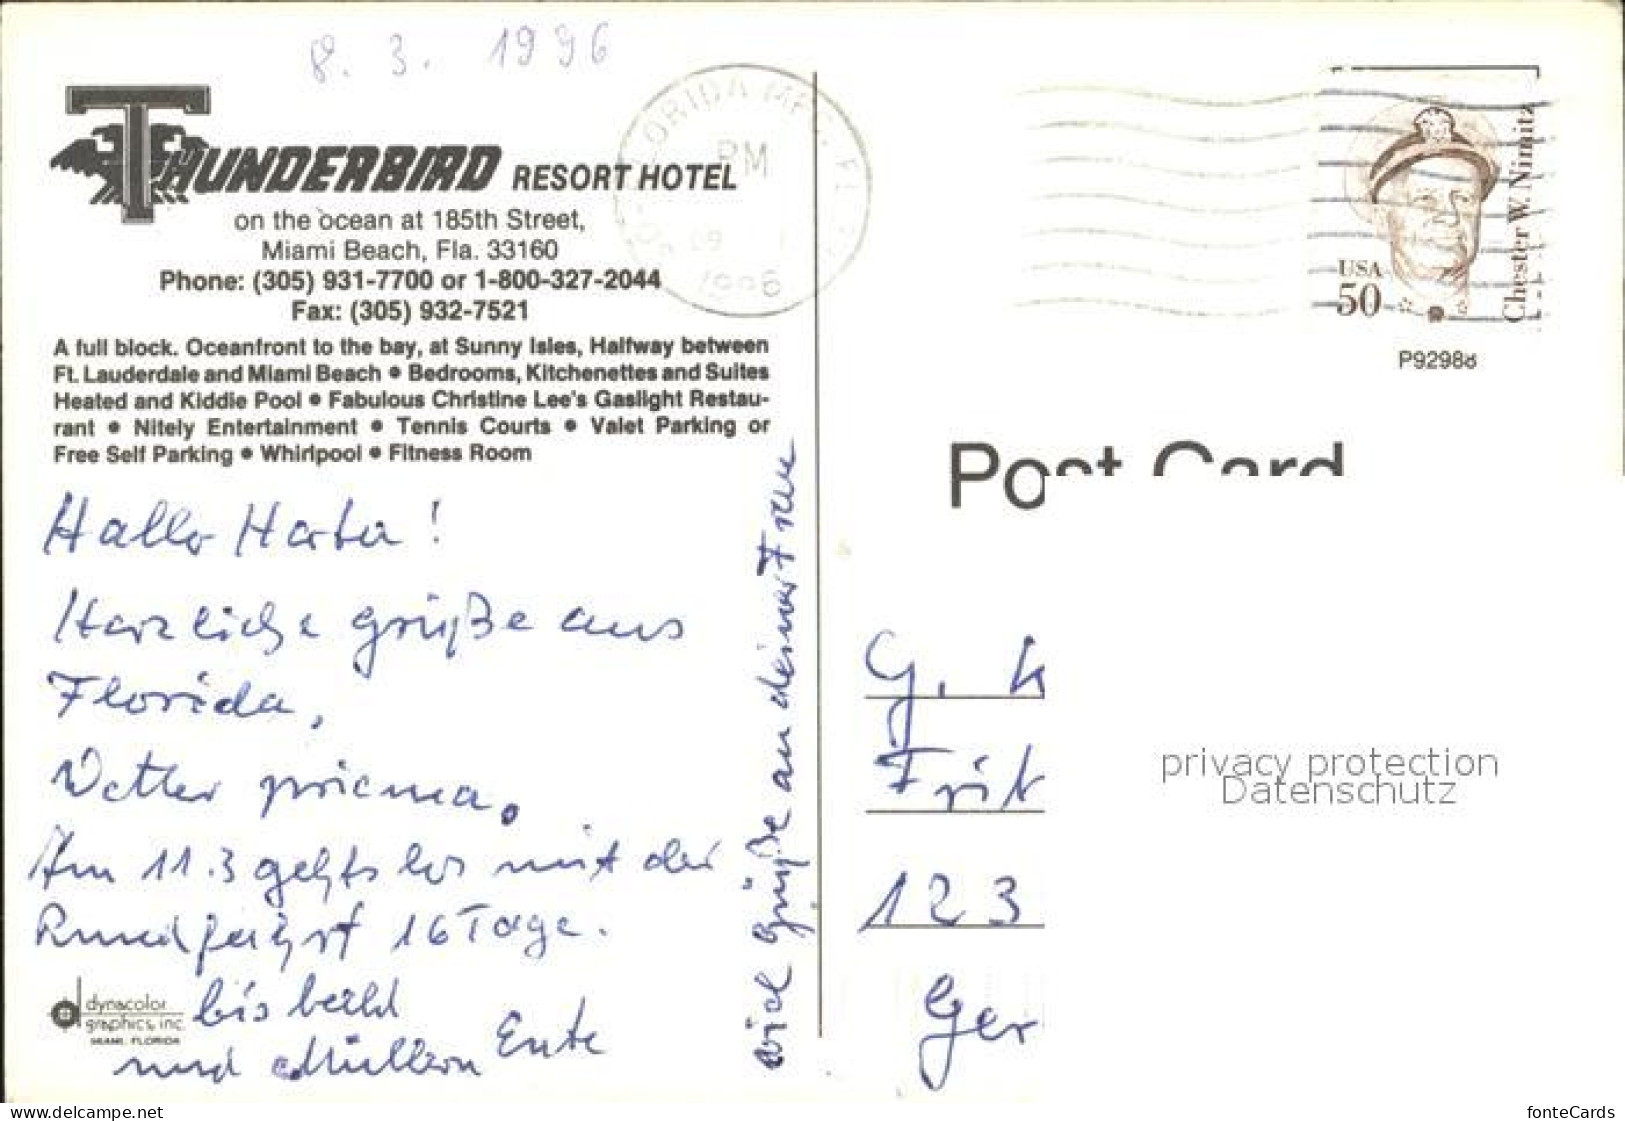 8. 3. 1996
THUNDERBIRD RESORT HOTEL
on the ocean at 185th Street,
Miami Beach, Fla. 33160
Phone: (305) 931-7700 or 1-800-327-2044
Fax: (305) 932-7521
A full block. Oceanfront to the bay, at Sunny Isles, Halfway between
Ft. Lauderdale and Miami Beach • Bedrooms, Kitchenettes and Suites
Heated and Kiddie Pool • Fabulous Christine Lee's Gaslight Restau-
rant • Nitely Entertainment • Tennis Courts • Valet Parking or
Free Self Parking • Whirlpool • Fitness Room
Hallo
Herzliche grüße aus
Florida,
Wetter prima.
Am 11.3 gehts los mit der
Rundfahrt 16 Tage.
bis bald
und Ente
viel Grüße an deine Frau
dynacolor
graphics, inc.
MIAMI, FLORIDA
FLORIDA
PM
09
1996
USA
50
Chester W. Nimitz
P92988
Post Card
G. K
Frit
123
Ger
privacy protection
Datenschutz
www.delcampe.net
fonteCards